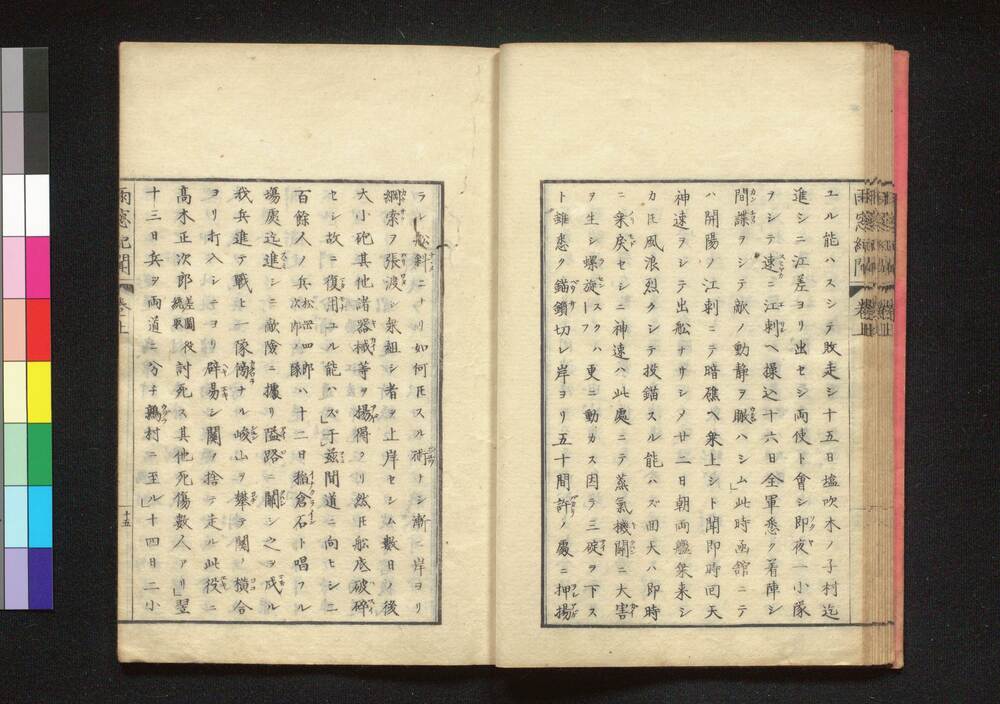 ユル能ハスシテ敗走シ十五日塩吹木ノ子村迄
進シニ江差ヨリ出セシ両使ト會シ即夜一小隊
ヲシテ速ニ江刺ヘ操込十六日全軍悉ク着陣シ
間諜ヲシテ敵ノ動静ヲ脈ハシム此時函館ニテ
ハ開陽ノ江刺ニテ暗礁ヘ乗上シト聞即時回天
神速ヲシテ出舩ナサシメ廿二日朝両艦乗来シ
カ𪜈風浪烈クシテ投錨スル能ハズ回天ハ即時
ニ乗戻セシニ神速ハ此處ニテ蒸氣機關ニ大害
ヲ生シ螺旋スクハ更ニ動カス因ラ三碇ヲ下ス
ト雖悉ク錨鎖切レ岸ヨリ五十間許ノ處ニ押揚
雨窓紀聞 巻上
ラレ舩斜ニナリ如何𪜈スル術ナシ漸ニ岸ヨリ
綱索ヲ張渡シ乗組シ者ヲ上岸セシム数日ノ後
大小砲其他諸器械等ヲ揚得タリ然𪜈舩底破碎
セシ故ニ復用ユル能ハズ」于茲間道ニ向ヒシニ
百餘人ノ兵 松岡四郎次郎ノ隊 ハ十二日指倉石ト唱フル
場處迄進シニ敵險ニ據リ隘路ニ關シ之ヲ戍ル
我兵進テ戰ヒ一隊傍ナル峻山ヲ攀テ関ノ横合
ヨリ打入シテヨリ辟易シ關ヲ捨テ走ル此役ニ
髙木正次郎 差圖役 討死ス其他死傷数人アリ」翌
十三日兵ヲ両道ニ分チ鶉村ニ至ル」十四日二小
雨窓紀聞 巻上 十五